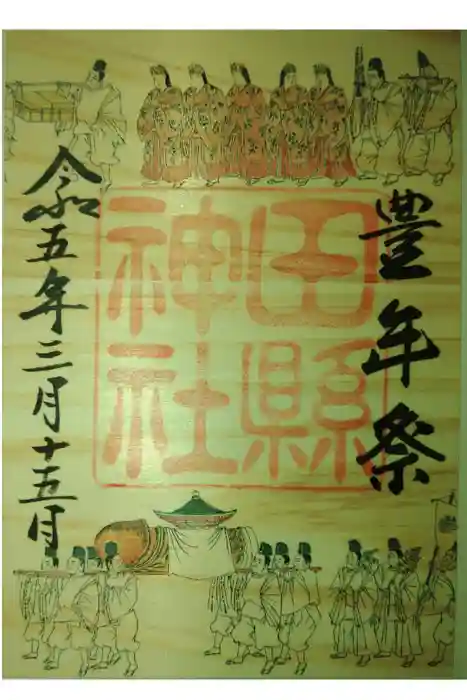 豊年祭
田縣
神社
令和五年三月十五日